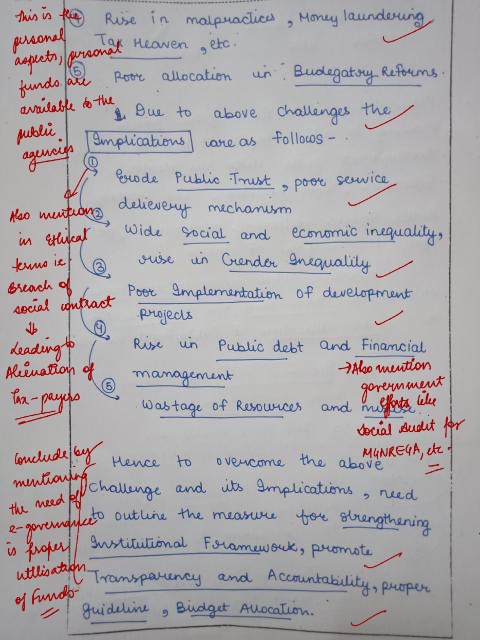 ④ Rise in malpractices, Money laundering
Tax Heaven, etc.
⑤ Poor allocation in Budegatry Reforms.
Due to above challenges the
Implications are as follows -
① Erode Public Trust, poor service
delievery mechanism
② Wide Social and economic inequality,
rise in Gender Inequality
③ Poor Implementation of development
projects
④ Rise in Public debt and Financial
management
⑤ Wastage of Resources and misuse.
Hence to overcome the above
Challenge and its Implications, need
to outline the measure for strengthening
Institutional Framework, promote
Transparency and Accountability, proper
guideline, Budget Allocation.
This is the
personal
aspects, personal
funds are
available to the
public
agencies
Also mention
in Ethical
terms ie
Breach of
social contract
↓
Leading to
Alienation of
Tax-payers
→ Also mention
government
efforts like
Social Audit for
MGNREGA, etc.
Conclude by
mentioning
the need of
e-governance
is proper
utilisation
of Funds.